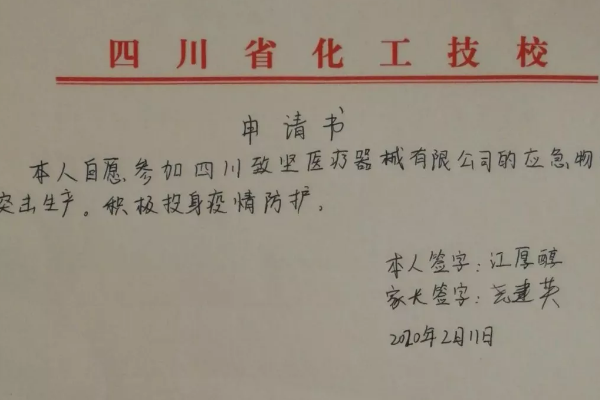 四川省化工技校
申请书
本人自愿参加四川致坚医疗器械有限公司的应急物
突击生产。积极投身疫情防护。
本人签字：江厚醇
家长签字：建英
2020年2月11日